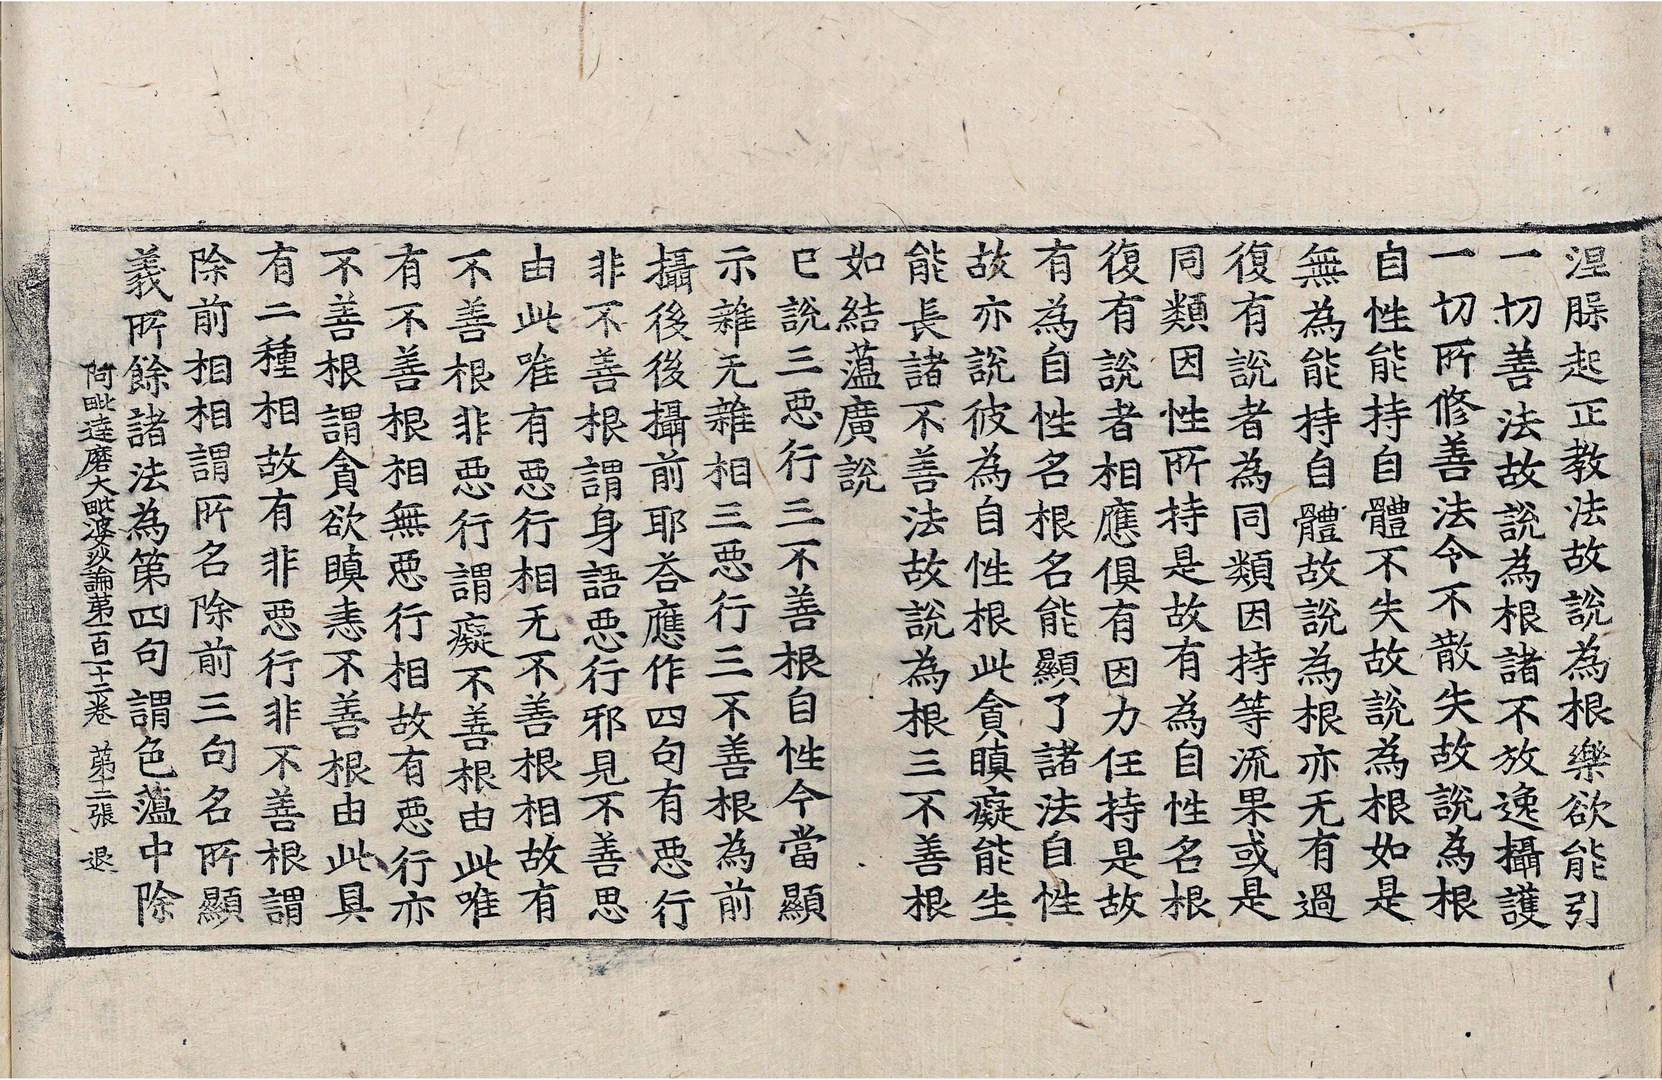 涅腺起正教法故說為根樂欲能引
一切善法故說為根諸不放逸攝護
一切所修善法令不散失故說為根
自性能持自體不失故說為根如是
無為能持自體故說為根亦无有過
復有說者為同類因持等流果或是
同類因性所持是故有為自性名根
復有說者相應俱有因力任持是故
有為自性名根名能顯了諸法自性
故亦說彼為自性根此貪瞋癡能生
能長諸不善法故說為根三不善根
如結薀廣說
已說三惡行三不善根自性今當顯
示雜无雜相三惡行三不善根為前
攝後後攝前耶荅應作四句有惡行
非不善根謂身語惡行邪見不善思
由此唯有惡行相无不善根相故有
不善根非惡行謂癡不善根由此唯
有不善根相無惡行相故有惡行亦
不善根謂貪欲瞋恚不善根由此具
有二種相故有非惡行非不善根謂
除前相相謂所名除前三句名所顯
義所餘諸法為第四句謂色薀中除
阿毗達磨大毗婆沙論第一百十二卷 第二張 退